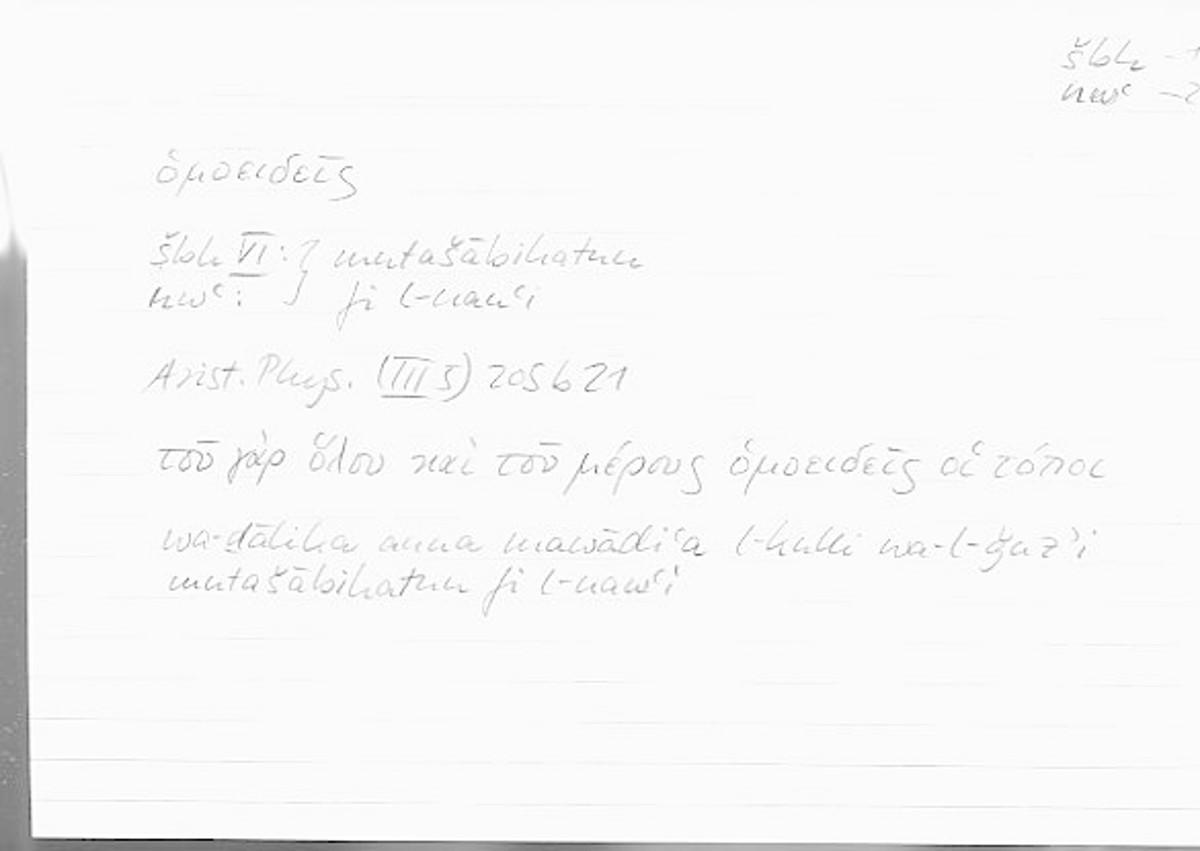 šbh -1
nwʿ -2
ὁμοειδεῖς
šbh VI: } mutašābihatun
nwʿ: } fī l-nawʿi
Arist. Phys. (III 5) 205 b 21
τοῦ γὰρ ὅλου καὶ τοῦ μέρους ὁμοειδεῖς οἱ τόποι
wa-ḏālika anna mawāḍiʿa l-kulli wa-l-ǧuzʾi
mutašābihatun fī l-nawʿi